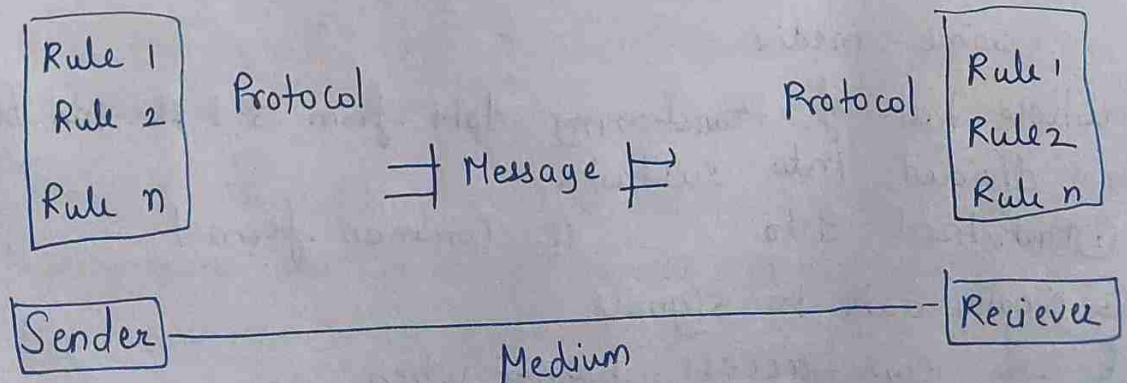 Rule 1
Rule 2
Rule n
Protocol
Message
Protocol
Rule 1
Rule 2
Rule n
Sender
Medium
Reciever